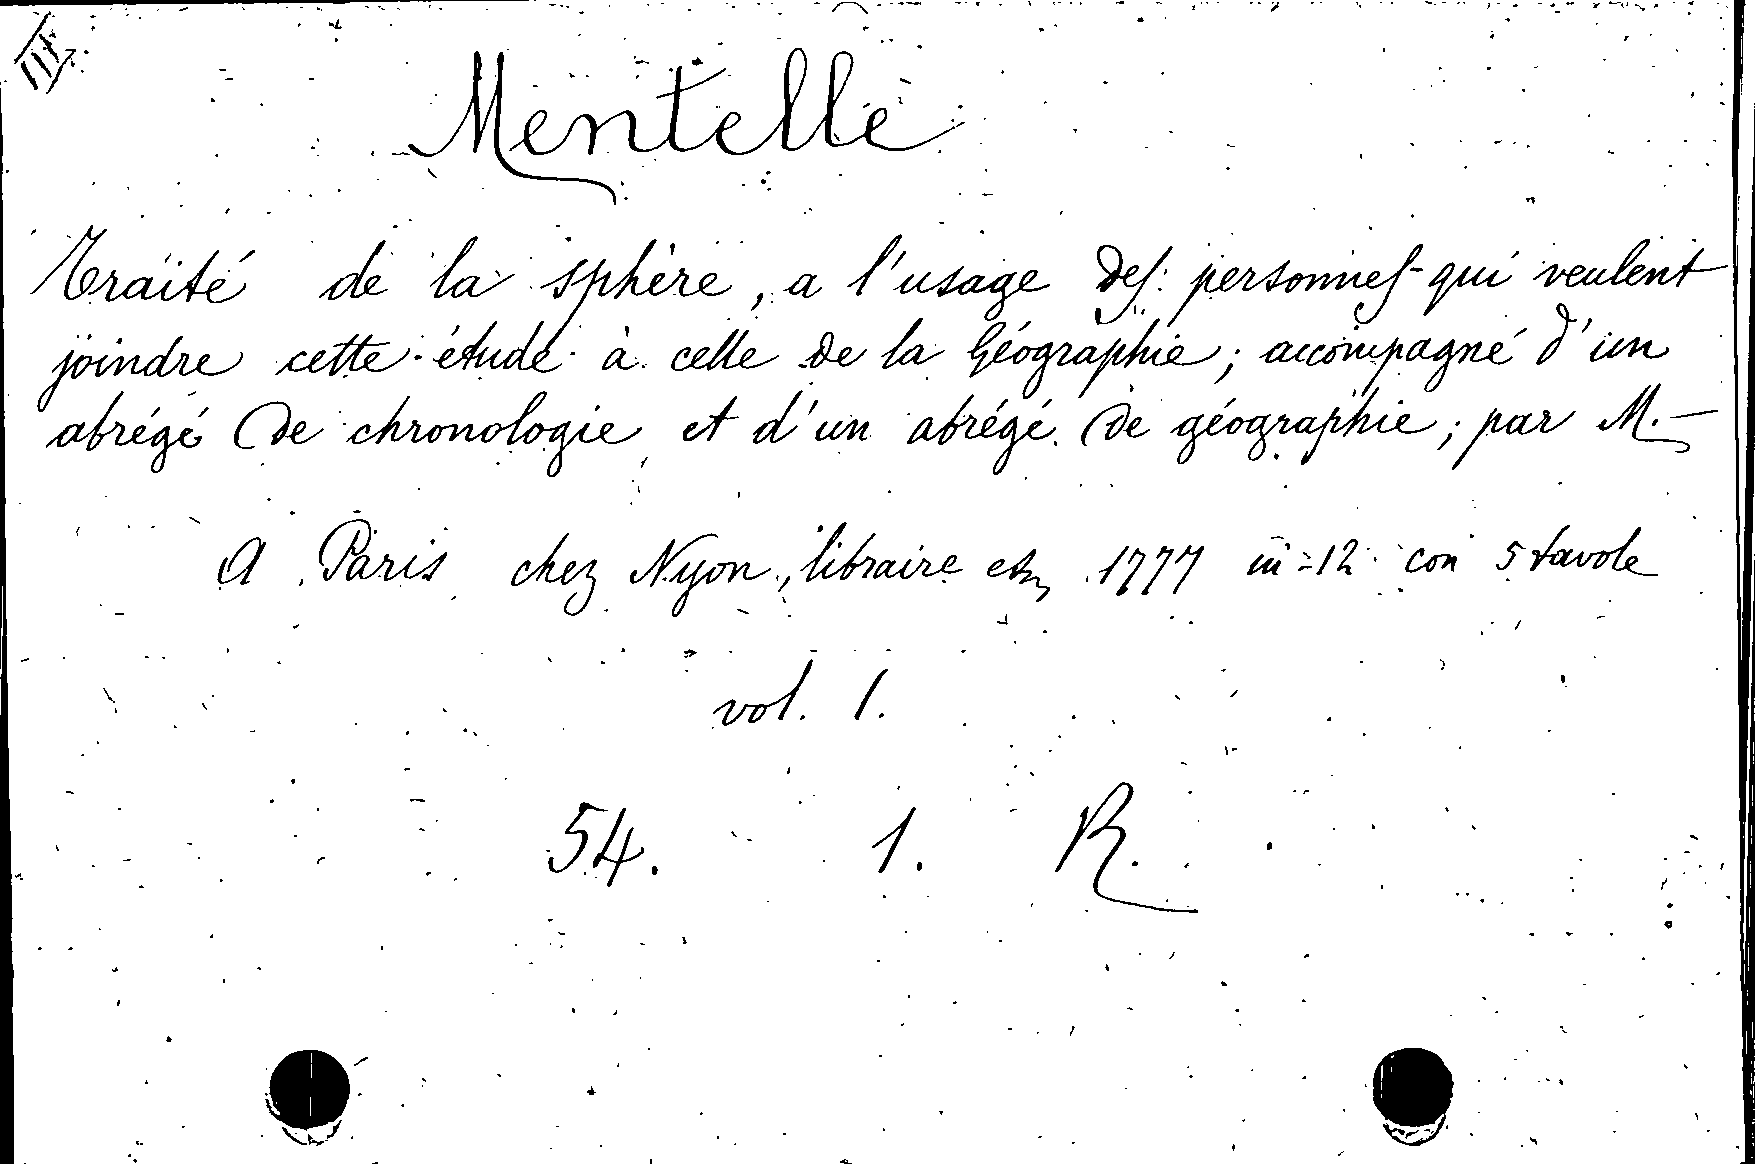 Mentelle
Traité de la sphère, a l'usage des personnes qui veulent
joindre cette étude à celle de la Géographie; accompagné d'un
abrégé de chronologie et d'un abrégé de géographie; par M.—
A Paris chez Nyon, libraire etc, 1777 in=12 con 5 tavole
vol. 1.
54. 1. R.